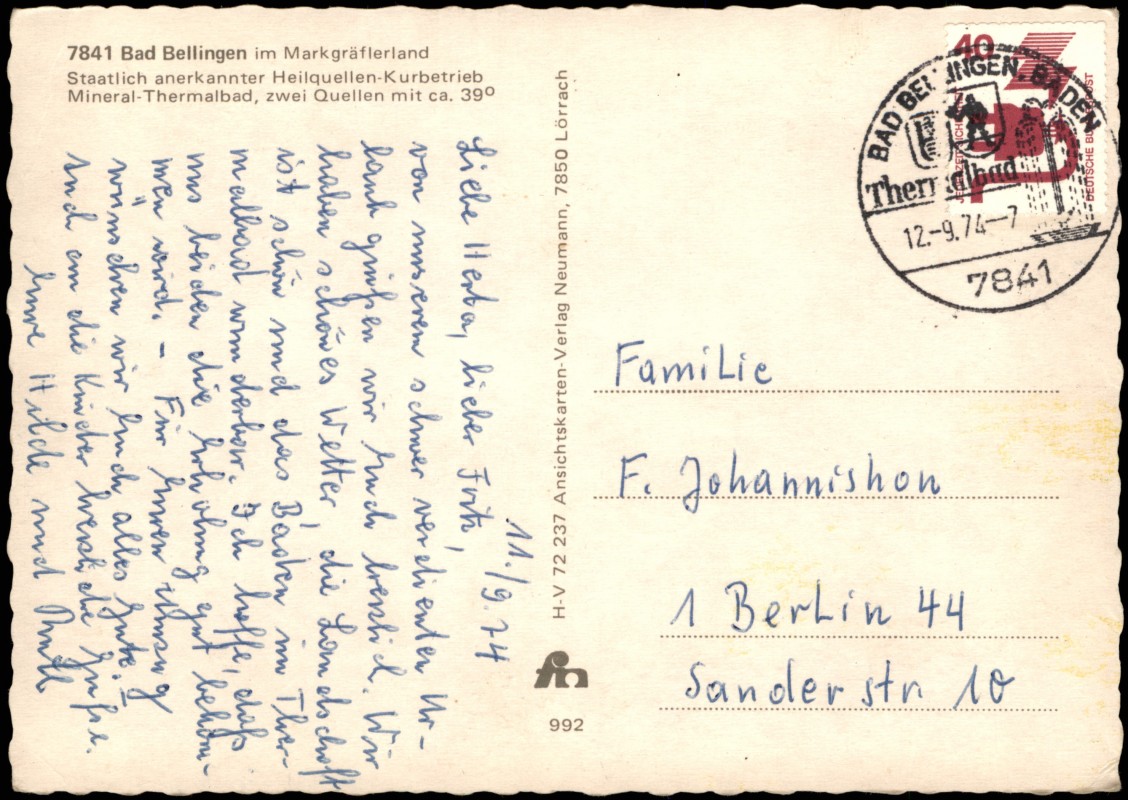 7841 Bad Bellingen im Markgräflerland
Staatlich anerkannter Heilquellen-Kurbetrieb
Mineral-Thermalbad, zwei Quellen mit ca. 39°
11./9.74
Liebe Herta, lieber Fritz,
von unserem schwer verdienten Ur-
laub grüßen wir Euch herzlich. Wir
haben schönes Wetter, die Landschaft
ist schön und das Baden im Ther-
malbad wunderbar. Ich hoffe, daß
uns beiden die Erholung gut bekom-
men wird. - Für Euren Umzug
wünschen wir Euch alles Gute.
Euch an die Kinder herzliche Grüße.
Eure Hilde und
H-V 72 237 Ansichtskarten-Verlag Neumann, 7850 Lörrach
992
40
DEUTSCHE BUNDESPOST
BAD BELLINGEN, BADEN
Thermalbad
12.-9.74--7
7841
Familie
F. Johannishon
1 Berlin 44
Sanderstr 10